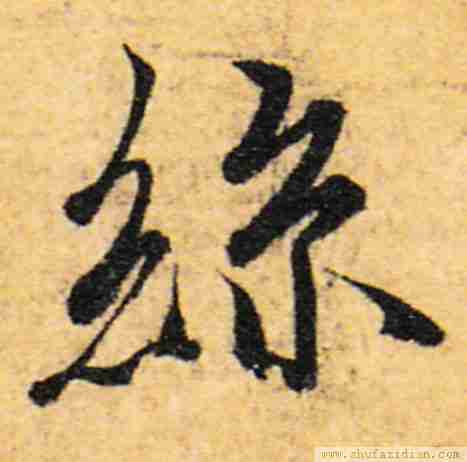 絲
www.shufazidian.com